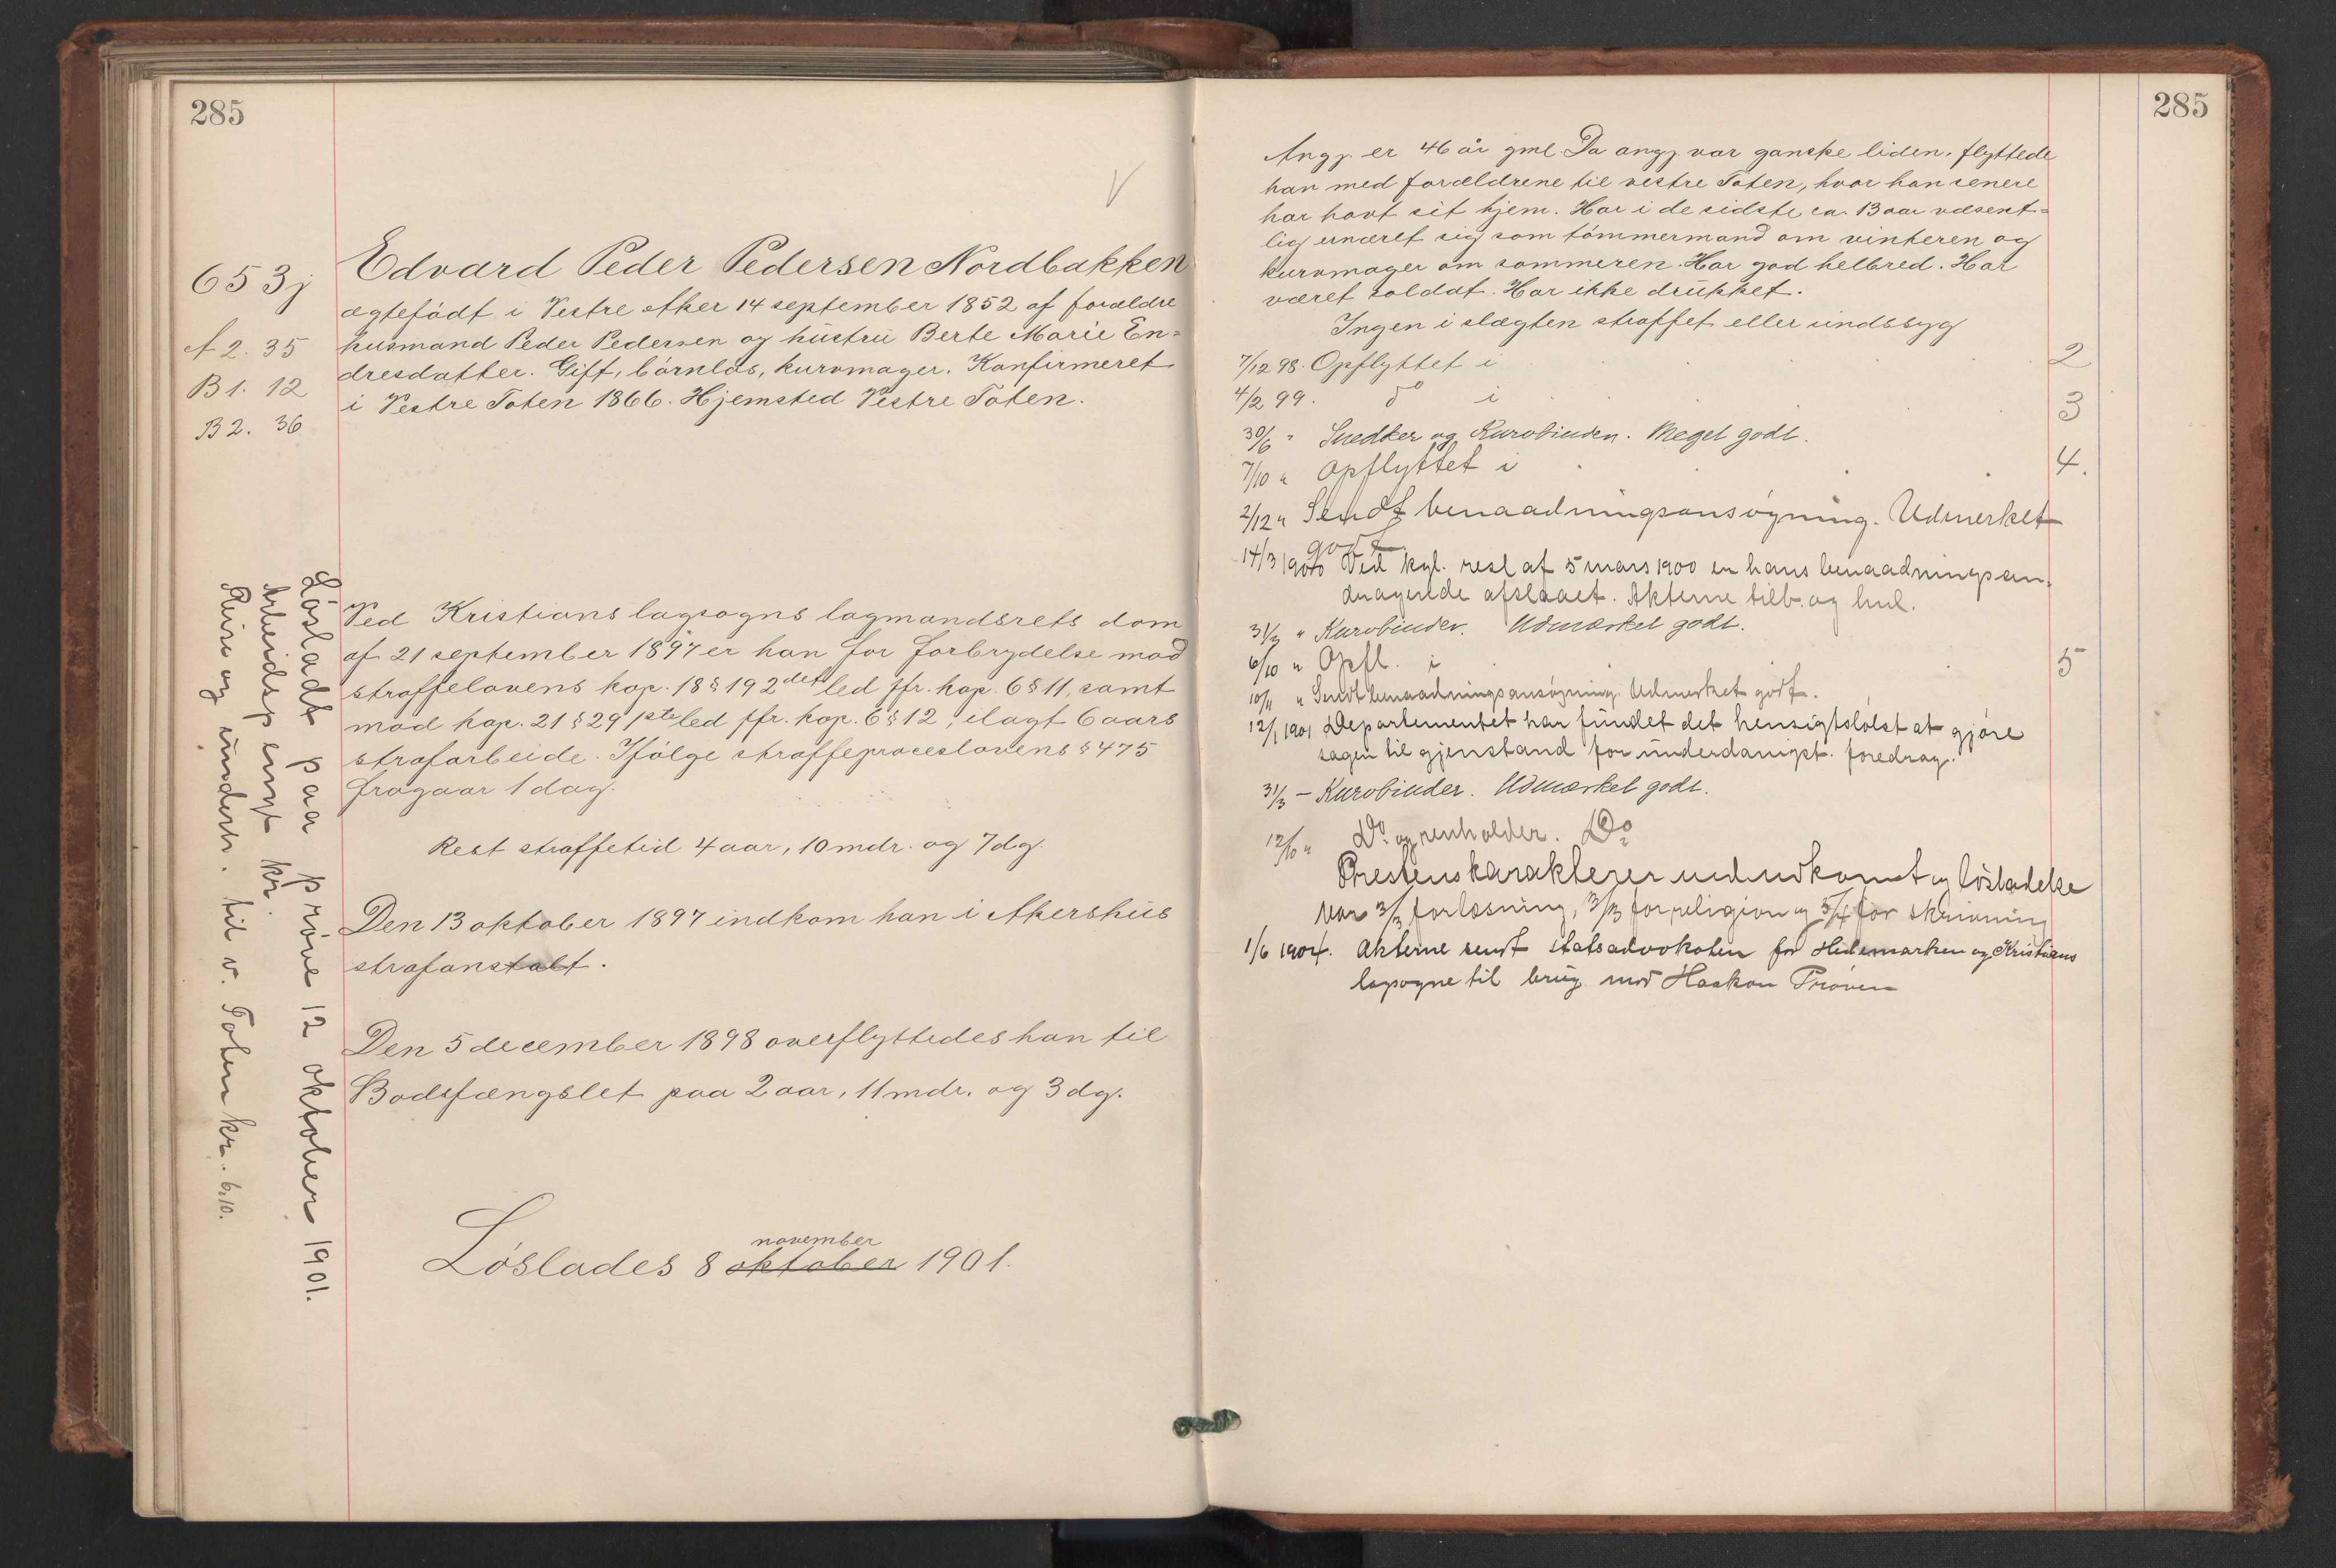 285
653j
A 2. 35
B 1. 12
B 2. 36
V
Edvard Peder Pedersen Nordbakken
ægtefødt i Vestre Aker 14 september 1852 af forældre
husmand Peder Pedersen og hustru Berte Marie En=
dresdatter. Gift, børnløs, kurvmager. Konfirmeret
i Vestre Toten 1866. Hjemsted Vestre Toten.
Ved Kristians lagsogns lagmandsrets dom
af 21 september 1897 er han for forbrydelse mod
straffelovens kap. 18 § 19 2det led jfr. kap. 6 § 11, samt
mod kap. 21 § 29 1ste led jfr. kap. 6 § 12, ilagt 6 aars
strafarbeide. Ifølge straffeproceslovens § 475
fragaar 1 dag.
Rest straffetid 4 aar, 10 mdr. og 7 dg.
Den 13 oktober 1897 indkom han i Akershus
strafanstalt.
Den 5 december 1898 overflyttedes han til
Bodsfængslet paa 2 aar, 11 mdr. og 3 dg.
november
Løslades 8 oktober 1901.
Løsladt paa prøve 12 oktober 1901.
Arbeidspengr kr.
Reise og underh. til v. Toten kr. 6.10.
285
Angj. er 46 år gml. Da angj. var ganske liden, flyttede
han med forældrene til vestre Toten, hvor han senere
har havt sit hjem. Har i de sidste ca. 13 aar væsent=
lig ernæret sig som tømmermand om vinteren og
kurvmager om sommeren. Har god helbred. Har
været soldat. Har ikke drukket.
Ingen i slægten straffet eller sindssyg
7/12 98. Opflyttet i 2
4/2 99. do i 3
30/6 " Snedker og Kurvbinder. Meget godt.
7/10 " Opflyttet i 4.
2/12 " Sendt benaadningsansøgning. Udmerket
godt.
14/3 1900 Ved kgl. resl af 5 mars 1900 er hans benaadningsan.
dragende afslaaet. Akterne tilb. og hnl.
31/3 " Kurvbinder. Udmærket godt.
6/10 " Opfl. i 5
10/11 " Sendt benaadningsansøgning. Udmerket godt.
12/1 1901 Departementet har fundet det hensigtsløst at gjøre
sagen til gjenstand for underdanigst. foredrag.
31/3 – Kurvbinder. Udmærket godt.
12/10 " Do. og renholder. Do
Prestens karakterer ved indkomst og løsladelse
var 3/3 for læsning, 3/3 for religion og 5/4 for skrivning
1/6 1904. Akterne sendt statsadvokaten for Hedemarken og Kristians
lagsogne til brug mod Haakon Prøven